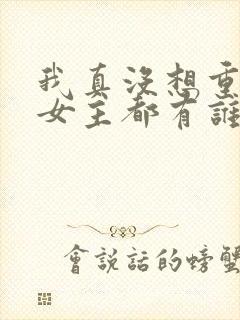 我真沒想重
女主都有誰
會說話的螃蟹